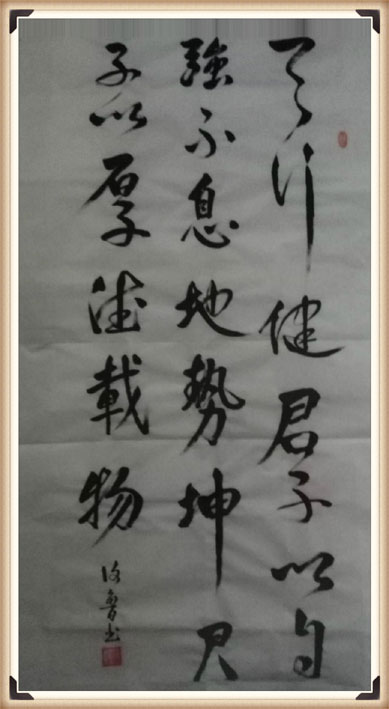 天行健君子以自
強不息地勢坤君
子以厚德載物
魯书